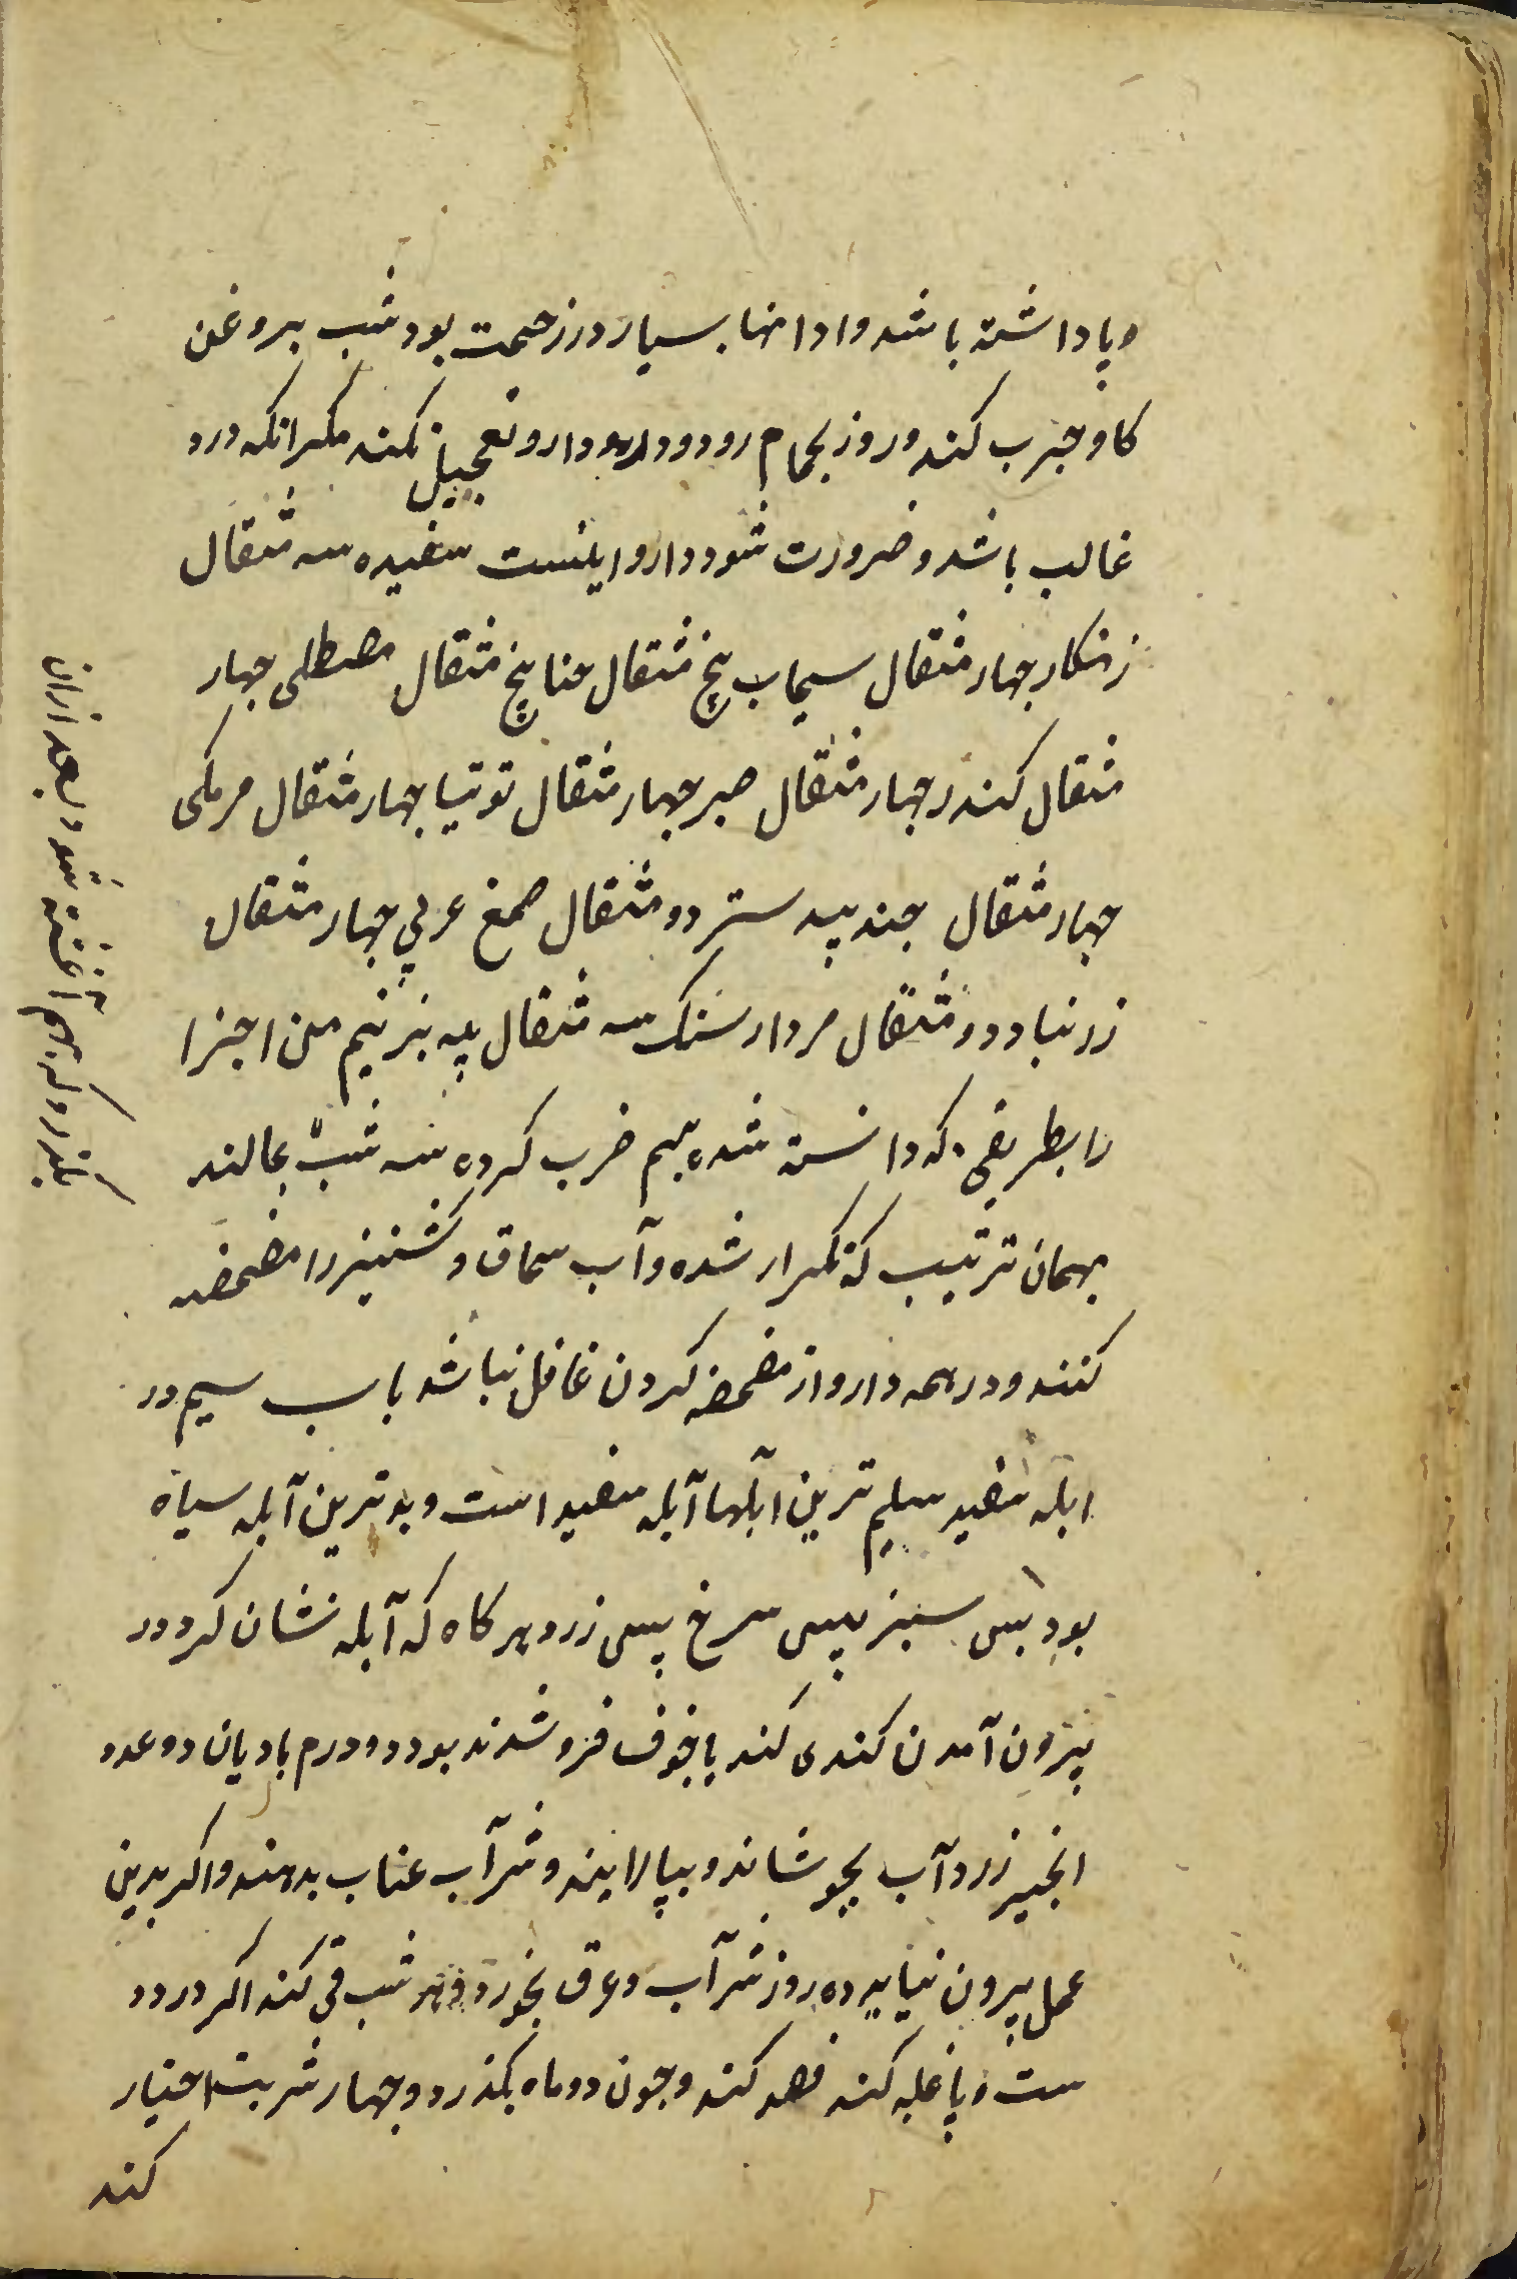 وپا داشته باشد وادا منها بسیار در زحمت بود شب بروغن
کاو جرب کند وروز بحمام رود ودارو تعجیل نکند مکر انکه درد
غالب باشد وضرورت شود دارو اینست سفیده سه مثقال
زنکار جهار مثقال سیماب پنج مثقال حنا پنج مثقال مصطلی جهار
مثقال کندر جهار مثقال صبر جهار مثقال توتیا جهار مثقال مرمکی
جهار مثقال جند بیدستر دو مثقال صمغ عربی جهار مثقال
زرنباد دو مثقال مردار سنک سه مثقال پیه بز نیم من اجزا
را بطریقی که دانسته شده بهم ضرب کرده سه شب بمالند
بهمان ترتیب که تکرار شده وآب سماق وکشنیز را مضمضه
کنند ودر همه دارو از مضمضه کردن غافل نباشد باب سیم در
ابله سفید سلیم ترین ابلها آبله سفید است وبدترین آبله سیاه
بود پس سبز پس سرخ پس زرد هر کاه که آبله نشان کرد ودر
بیرون آمدن کندی کند یا خوف فرو شدند بود دو درم بادیان دو عدد
انجیر زرد آب بجوشاند وبپالایند وشرآب عناب بدهند واکر بدین
عمل بیرون نیاید ده روز شرآب وعرق بخورد وهر شب قی کند اکر درد د
ست وپا غلبه کند فصد کند وجون دو ماه بکذرد وجهار شربت اختیار
کند
بعد ازان